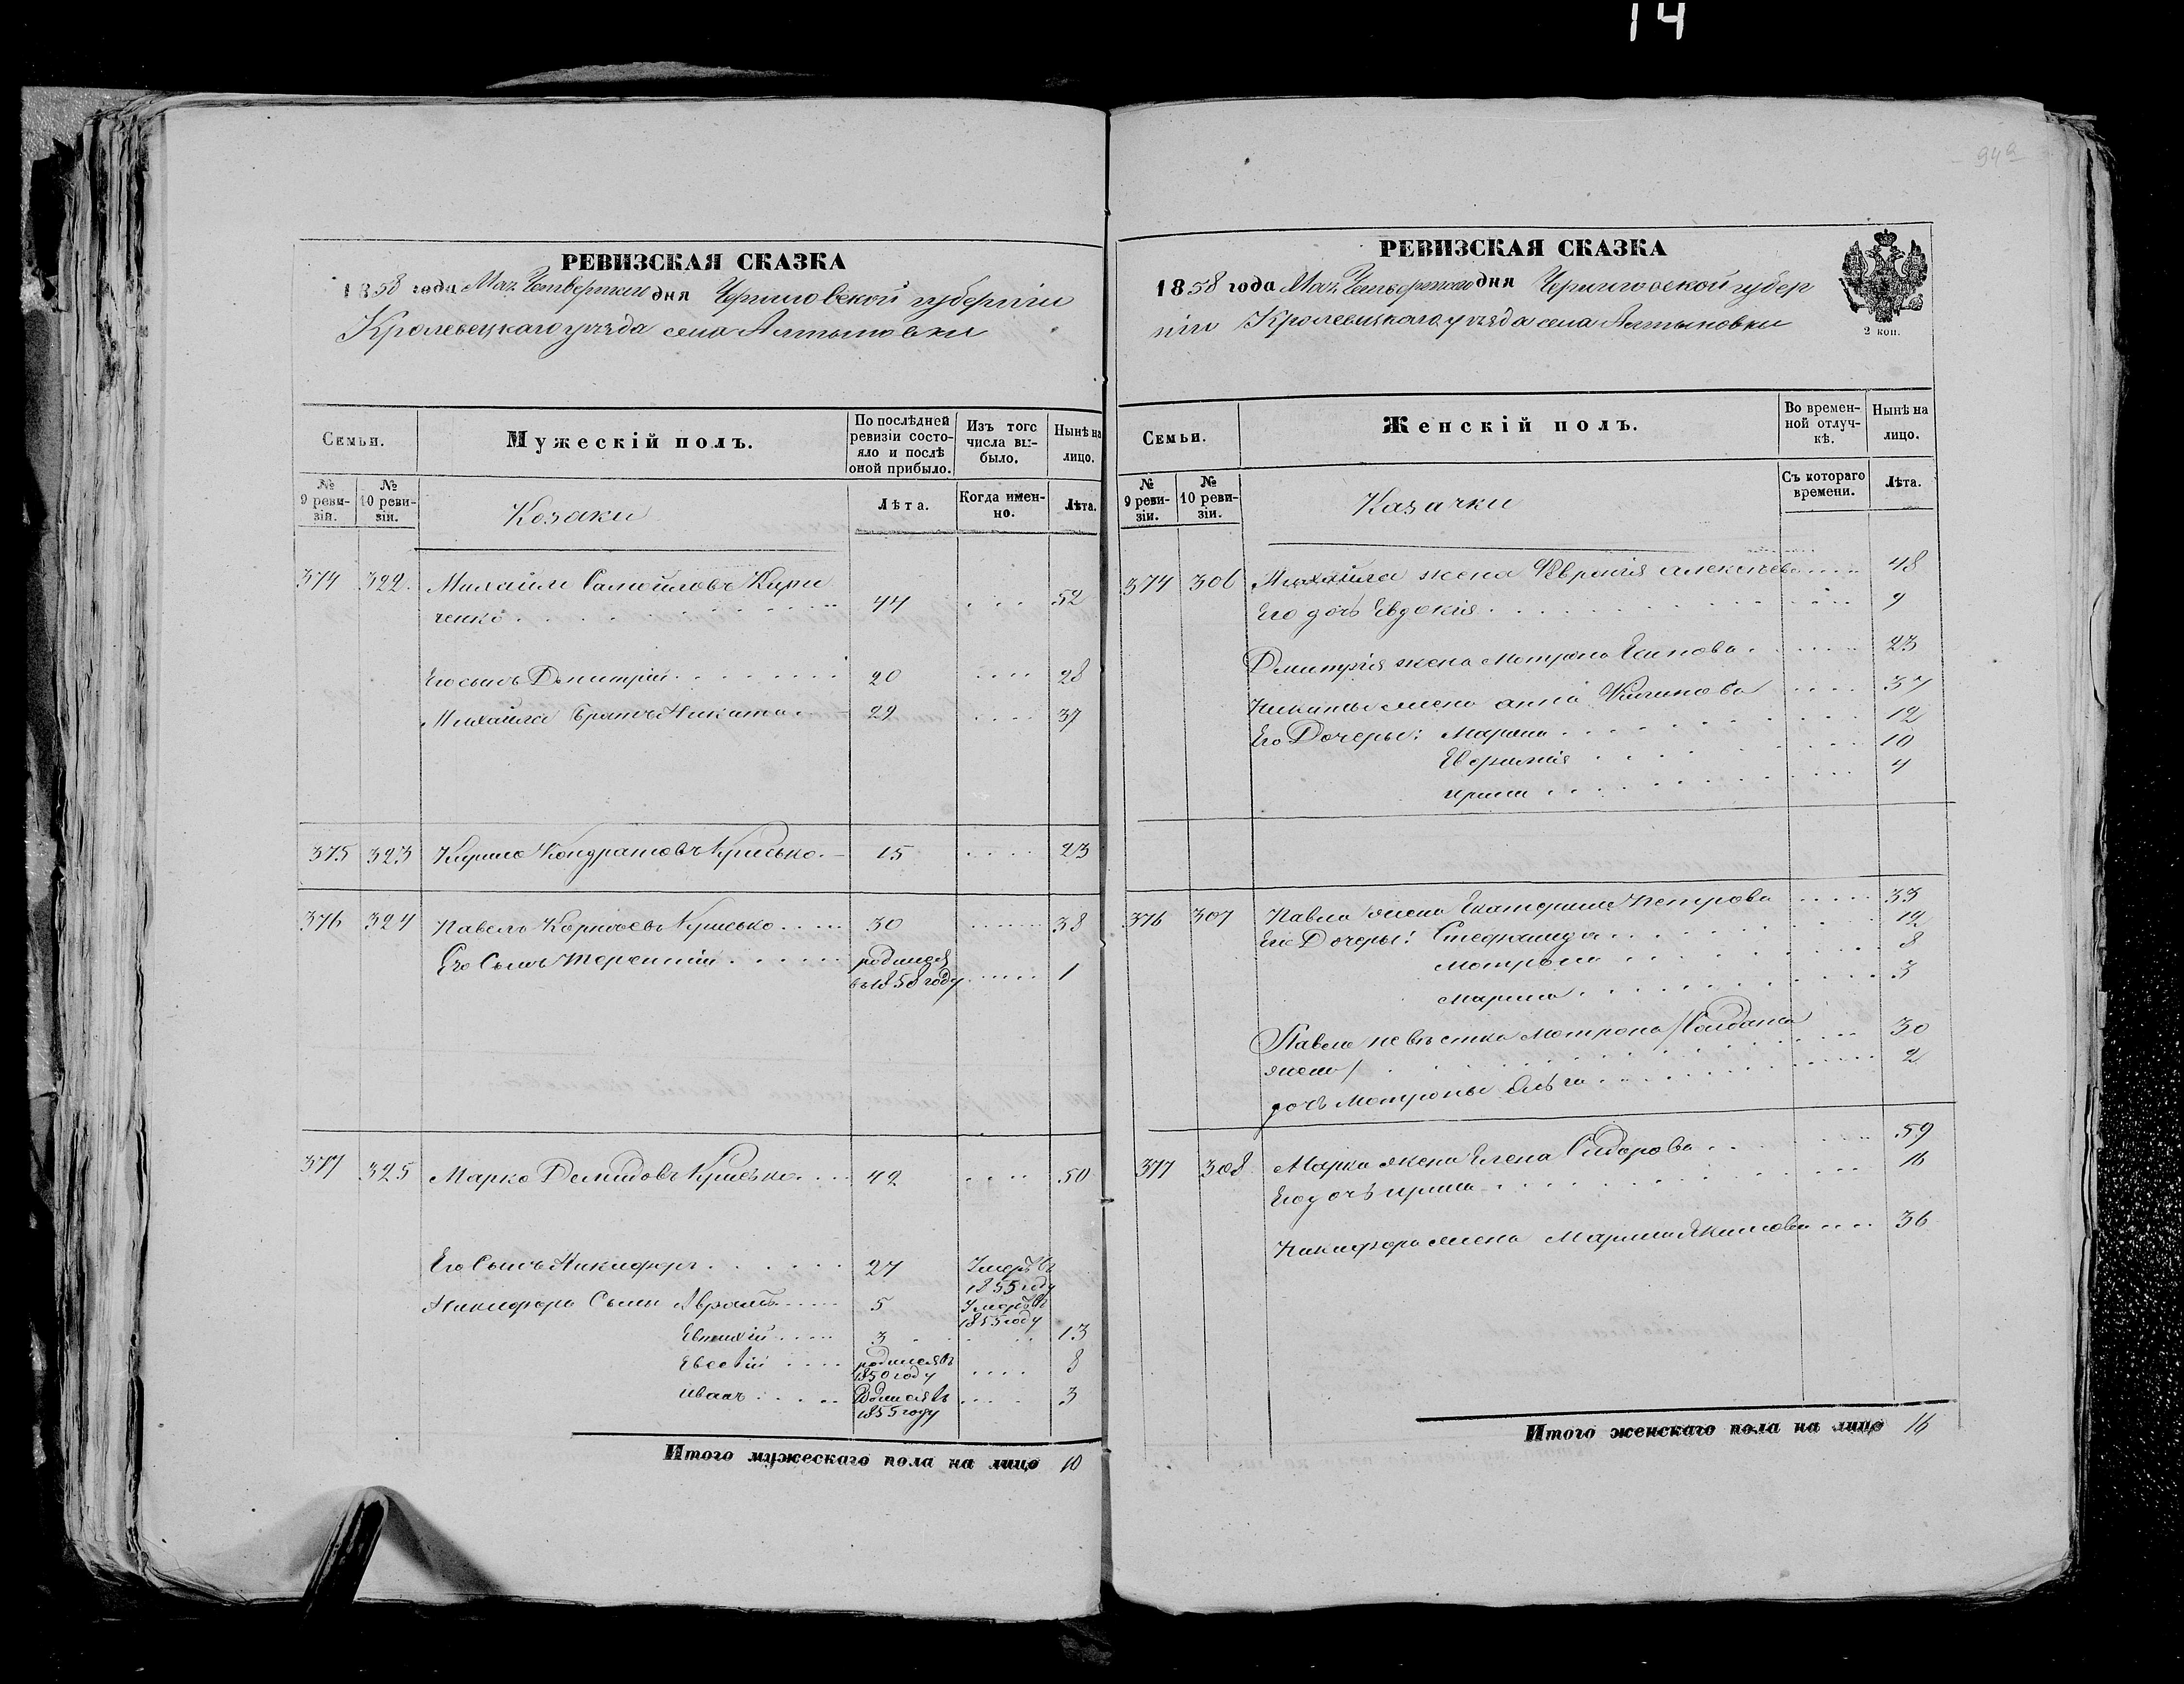 14
942
РЕВИЗСКАЯ СКАЗКА
1858 года Мая Четвертаго дня Черниговской губерніи
Кролевецкаго уезда села Алтыновки
Семьи.
Мужескій полъ.
По послѣдней ревизіи состояло и послѣ оной прибыло.
Изъ того числа выбыло.
Нынѣ на лицо.
№ 9 ревизіи.
№ 10 ревизіи.
Козаки
Лѣта.
Когда именно.
Лѣта.
374 322. Михаилъ Самойловъ Кири
ченко 44 52
Его сынъ Дмитрій 20 28
Михайла братъ Никита 29 37
375 323 Кирило Кондратовъ Крисько 15 23
376 324 Павелъ Корнѣевъ Крисько 30 38
Его Сынъ Терентій родился
въ 1858 году 1
377 325 Марко Демидовъ Крисько 42 50
Его Сынъ Никифоръ 27 Умеръ въ
1855 году
Никифора Сыны Аврамъ 5 Умеръ въ
1855 году
Евтихій 3 13
родился въ
1850 году 8
Иванъ Родился въ
1855 году 3
Итого мужескаго пола на лицо 10
РЕВИЗСКАЯ СКАЗКА
1858 года Мая Четвертаго дня Черниговской губер
ніи Кролевецкаго уезда села Алтыновки
2 коп.
Семьи.
Женскій полъ.
Во временной отлучкѣ.
Нынѣ на лицо.
№ 9 ревизіи.
№ 10 ревизіи.
Казачки
Съ котораго времени.
Лѣта.
374 306 Михайла жена Февронія Алексѣева 48
Его дочь Евдокія 9
Дмитрія жена Мотрона 23
Никиты жена Анна 37
Его Дочеры: Марина 12
Евфимія 10
Ирина 4
376 307 Павла жена Екатерина Петрова 33
Его Дочеры: Стефанида 12
Мотрона 8
Марина 3
Павла невѣстка Мотрона /Солдатка
жена/ 30
дочь Мотроны 2
377 308 Марка жена Елена Сидорова 59
Его дочь Ирина 16
Никифора жена Марина Якимова 36
Итого женскаго пола на лицо 16